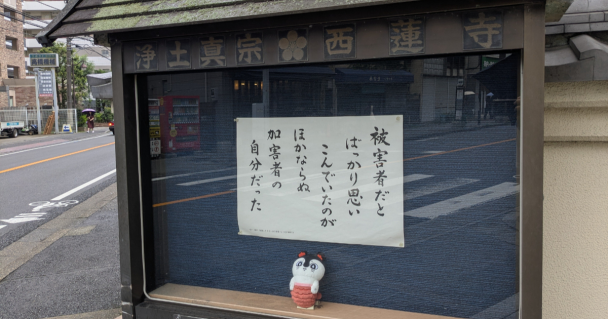 浄土真宗 西蓮寺
被害者だと
ばっかり思い
こんでいたのが
ほかならぬ
加害者の
自分だった